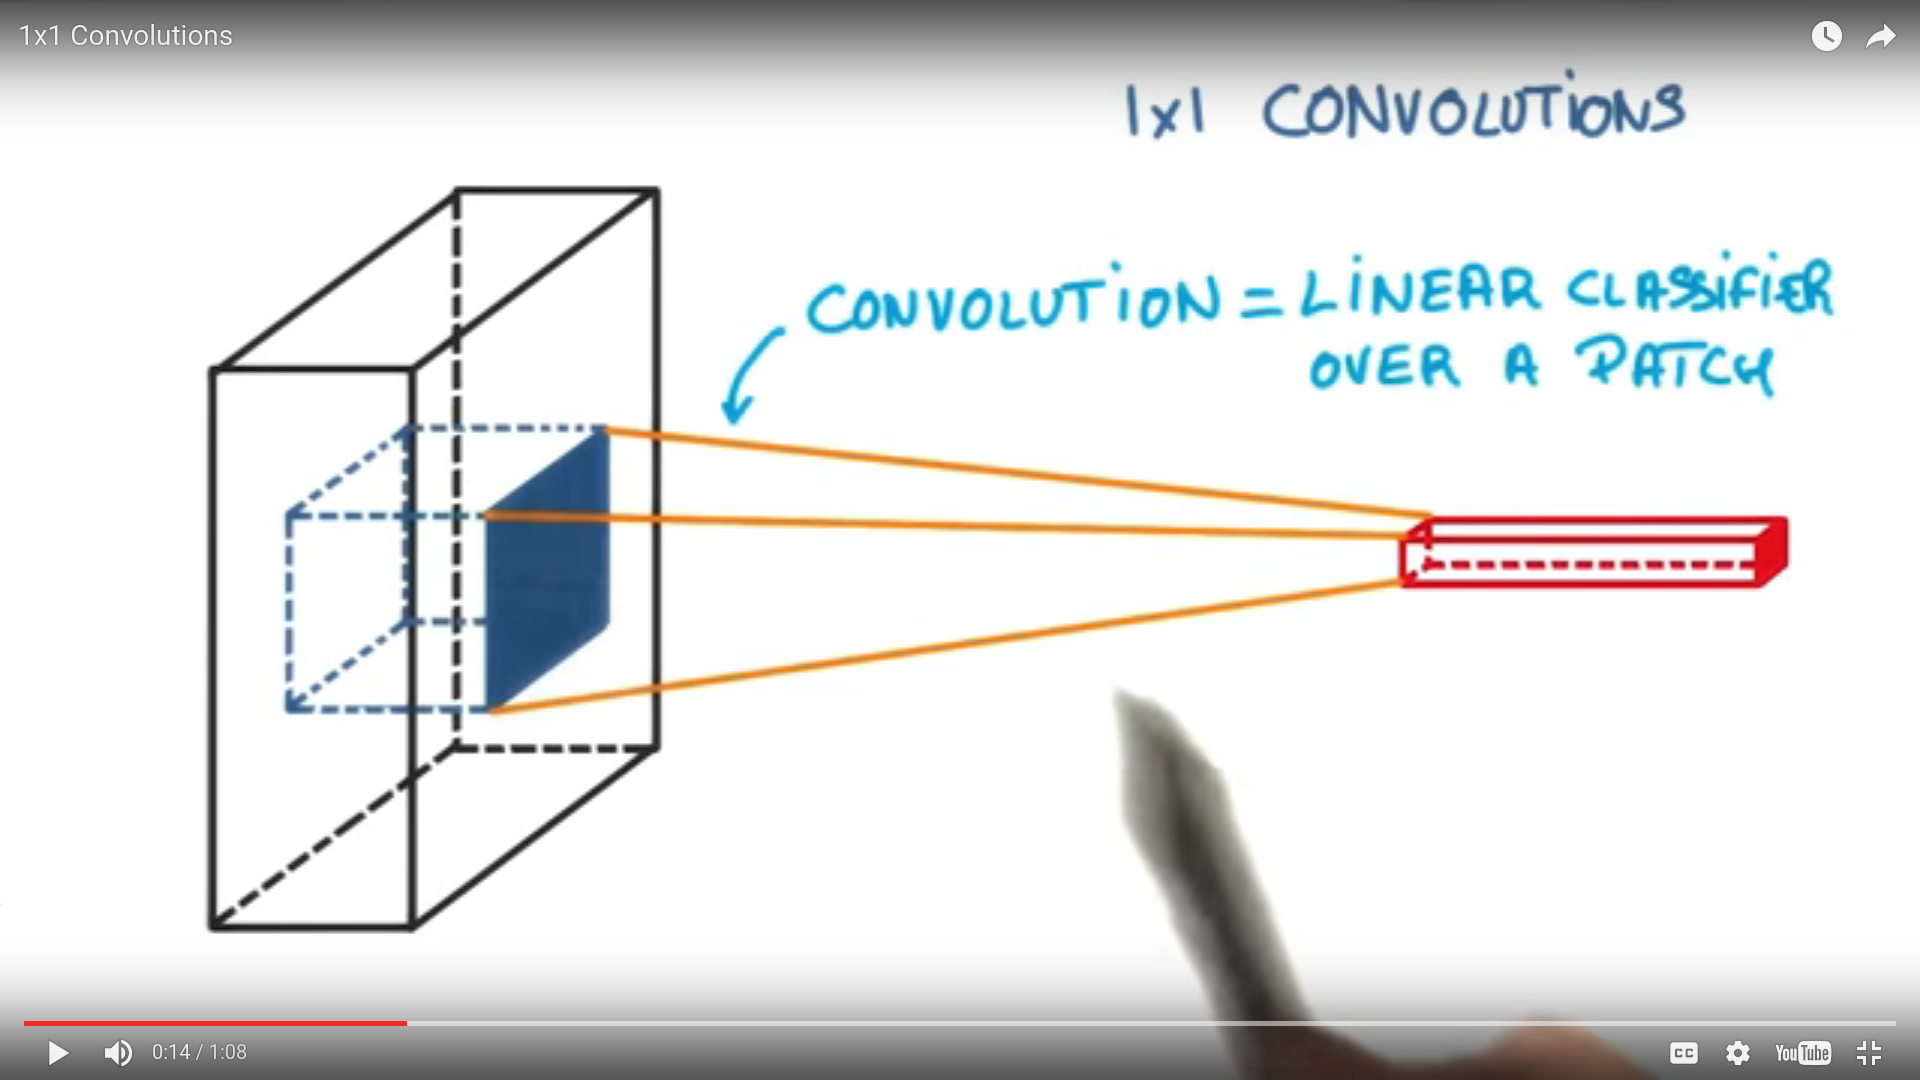 1x1 Convolutions
1x1 CONVOLUTIONS
CONVOLUTION = LINEAR CLASSIFIER
OVER A PATCH
0:14 / 1:08
CC
YouTube